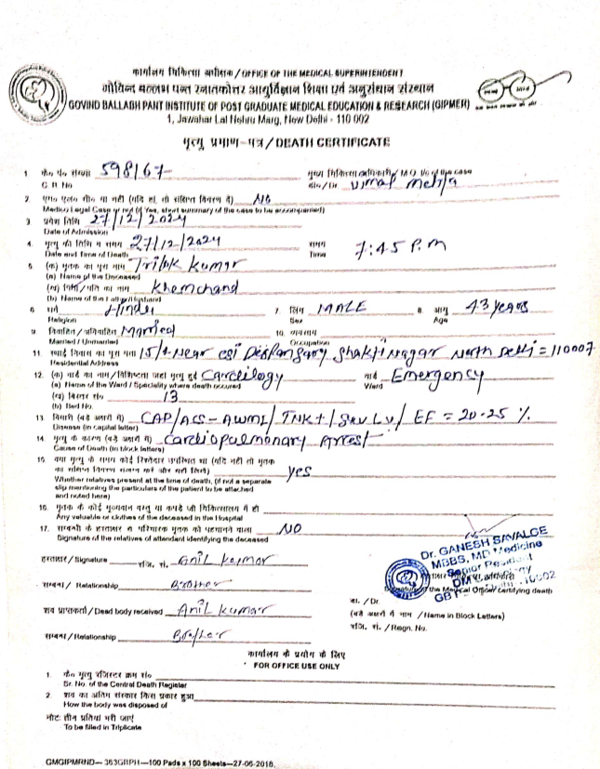 कार्यालय चिकित्सा अधीक्षक / OFFICE OF THE MEDICAL SUPERINTENDENT
गोविन्द बल्लभ पन्त स्नातकोत्तर आयुर्विज्ञान शिक्षा एवं अनुसंधान संस्थान
GOVIND BALLABH PANT INSTITUTE OF POST GRADUATE MEDICAL EDUCATION & RESEARCH (GIPMER)
1, Jawahar Lal Nehru Marg, New Delhi - 110 002
मृत्यु प्रमाण-पत्र / DEATH CERTIFICATE
1. के० प० संख्या 598167 मुख्य चिकित्सा अधिकारी/ M.O. I/c of the case
C.R. No. डॉ०/Dr. Vimal Mehta
2. एम० एल० सी० या नहीं (यदि हां, तो संक्षिप्त विवरण दें) NO
Medico Legal Case or not (if Yes, short summary of the case to be accompanied)
3. प्रवेश तिथि 27/12/2024
Date of Admission
4. मृत्यु की तिथि व समय 27/12/2024 समय 7:45 P.M
Date and Time of Death Time
5. (क) मृतक का पूरा नाम Trilok Kumar
(a) Name of the Deceased
(ख) पिता/पति का नाम Khemchand
(b) Name of the Father/Husband
6. धर्म Hindu 7. लिंग MALE 8. आयु 43 years
Religion Sex Age
9. विवाहित / अविवाहित Married 10. व्यवसाय
Married / Unmarried Occupation
11. स्थाई निवास का पूरा पता 15/1 Near esi Dispansary Shakti Nagar North Delhi = 110007
Residential Address
12. (क) वार्ड का नाम/विशिष्टता जहां मृत्यु हुई Cardiology वार्ड Emergency
(a) Name of the Ward / Speciality where death occured Ward
(ख) बिस्तर सं० 13
(b) Bed No.
13. बिमारी (बड़े अक्षरों में) CAD/ACS-AWMI/TNK+/Sev LV/ EF = 20-25 %
Disease (in capital letter)
14. मृत्यु के कारण (बड़े अक्षरों में) Cardiopulmonary Arrest
Cause of Death (in block letters)
15. क्या मृत्यु के समय कोई रिश्तेदार उपस्थित था (यदि नहीं तो मृतक
का संक्षिप्त विवरण संलग्न करें और यहाँ लिखें) yes
Whether relatives present at the time of death, (if not a separate
slip mentioning the particulars of the patient to be attached
and noted here)
16. मृतक के कोई मूल्यवान वस्तु या कपड़े जो चिकित्सालय में हो
Any valuable or clothes of the deceased in the Hospital
17. सम्बन्धी के हस्ताक्षर से परिचारक मृतक को पहचानने वाला NO
Signature of the relatives of attendant identifying the deceased
हस्ताक्षर / Signature रजि. सं. Anil Kumar
Dr. GANESH SAVALGE
MBBS, MD Medicine
Senior Resident
सम्बन्ध / Relationship Brother
of the Medical Officer certifying death
शव प्राप्तकर्ता / Dead body received Anil Kumar
डा. / Dr.
(बड़े अक्षरों में नाम / Name in Block Letters)
रजि. सं. / Regn. No.
सम्बन्ध / Relationship Brother
कार्यालय के प्रयोग के लिए
* FOR OFFICE USE ONLY
1. के० मृत्यु रजिस्टर क्रम सं०
Sr. No. of the Central Death Register
2. शव का अंतिम संस्कार किस प्रकार हुआ
How the body was disposed of
नोट: तीन प्रतियां भरी जाएं
To be filled in Triplicate
GMGIPMRND— 363GBPH—100 Pads x 100 Sheets—27-06-2018.